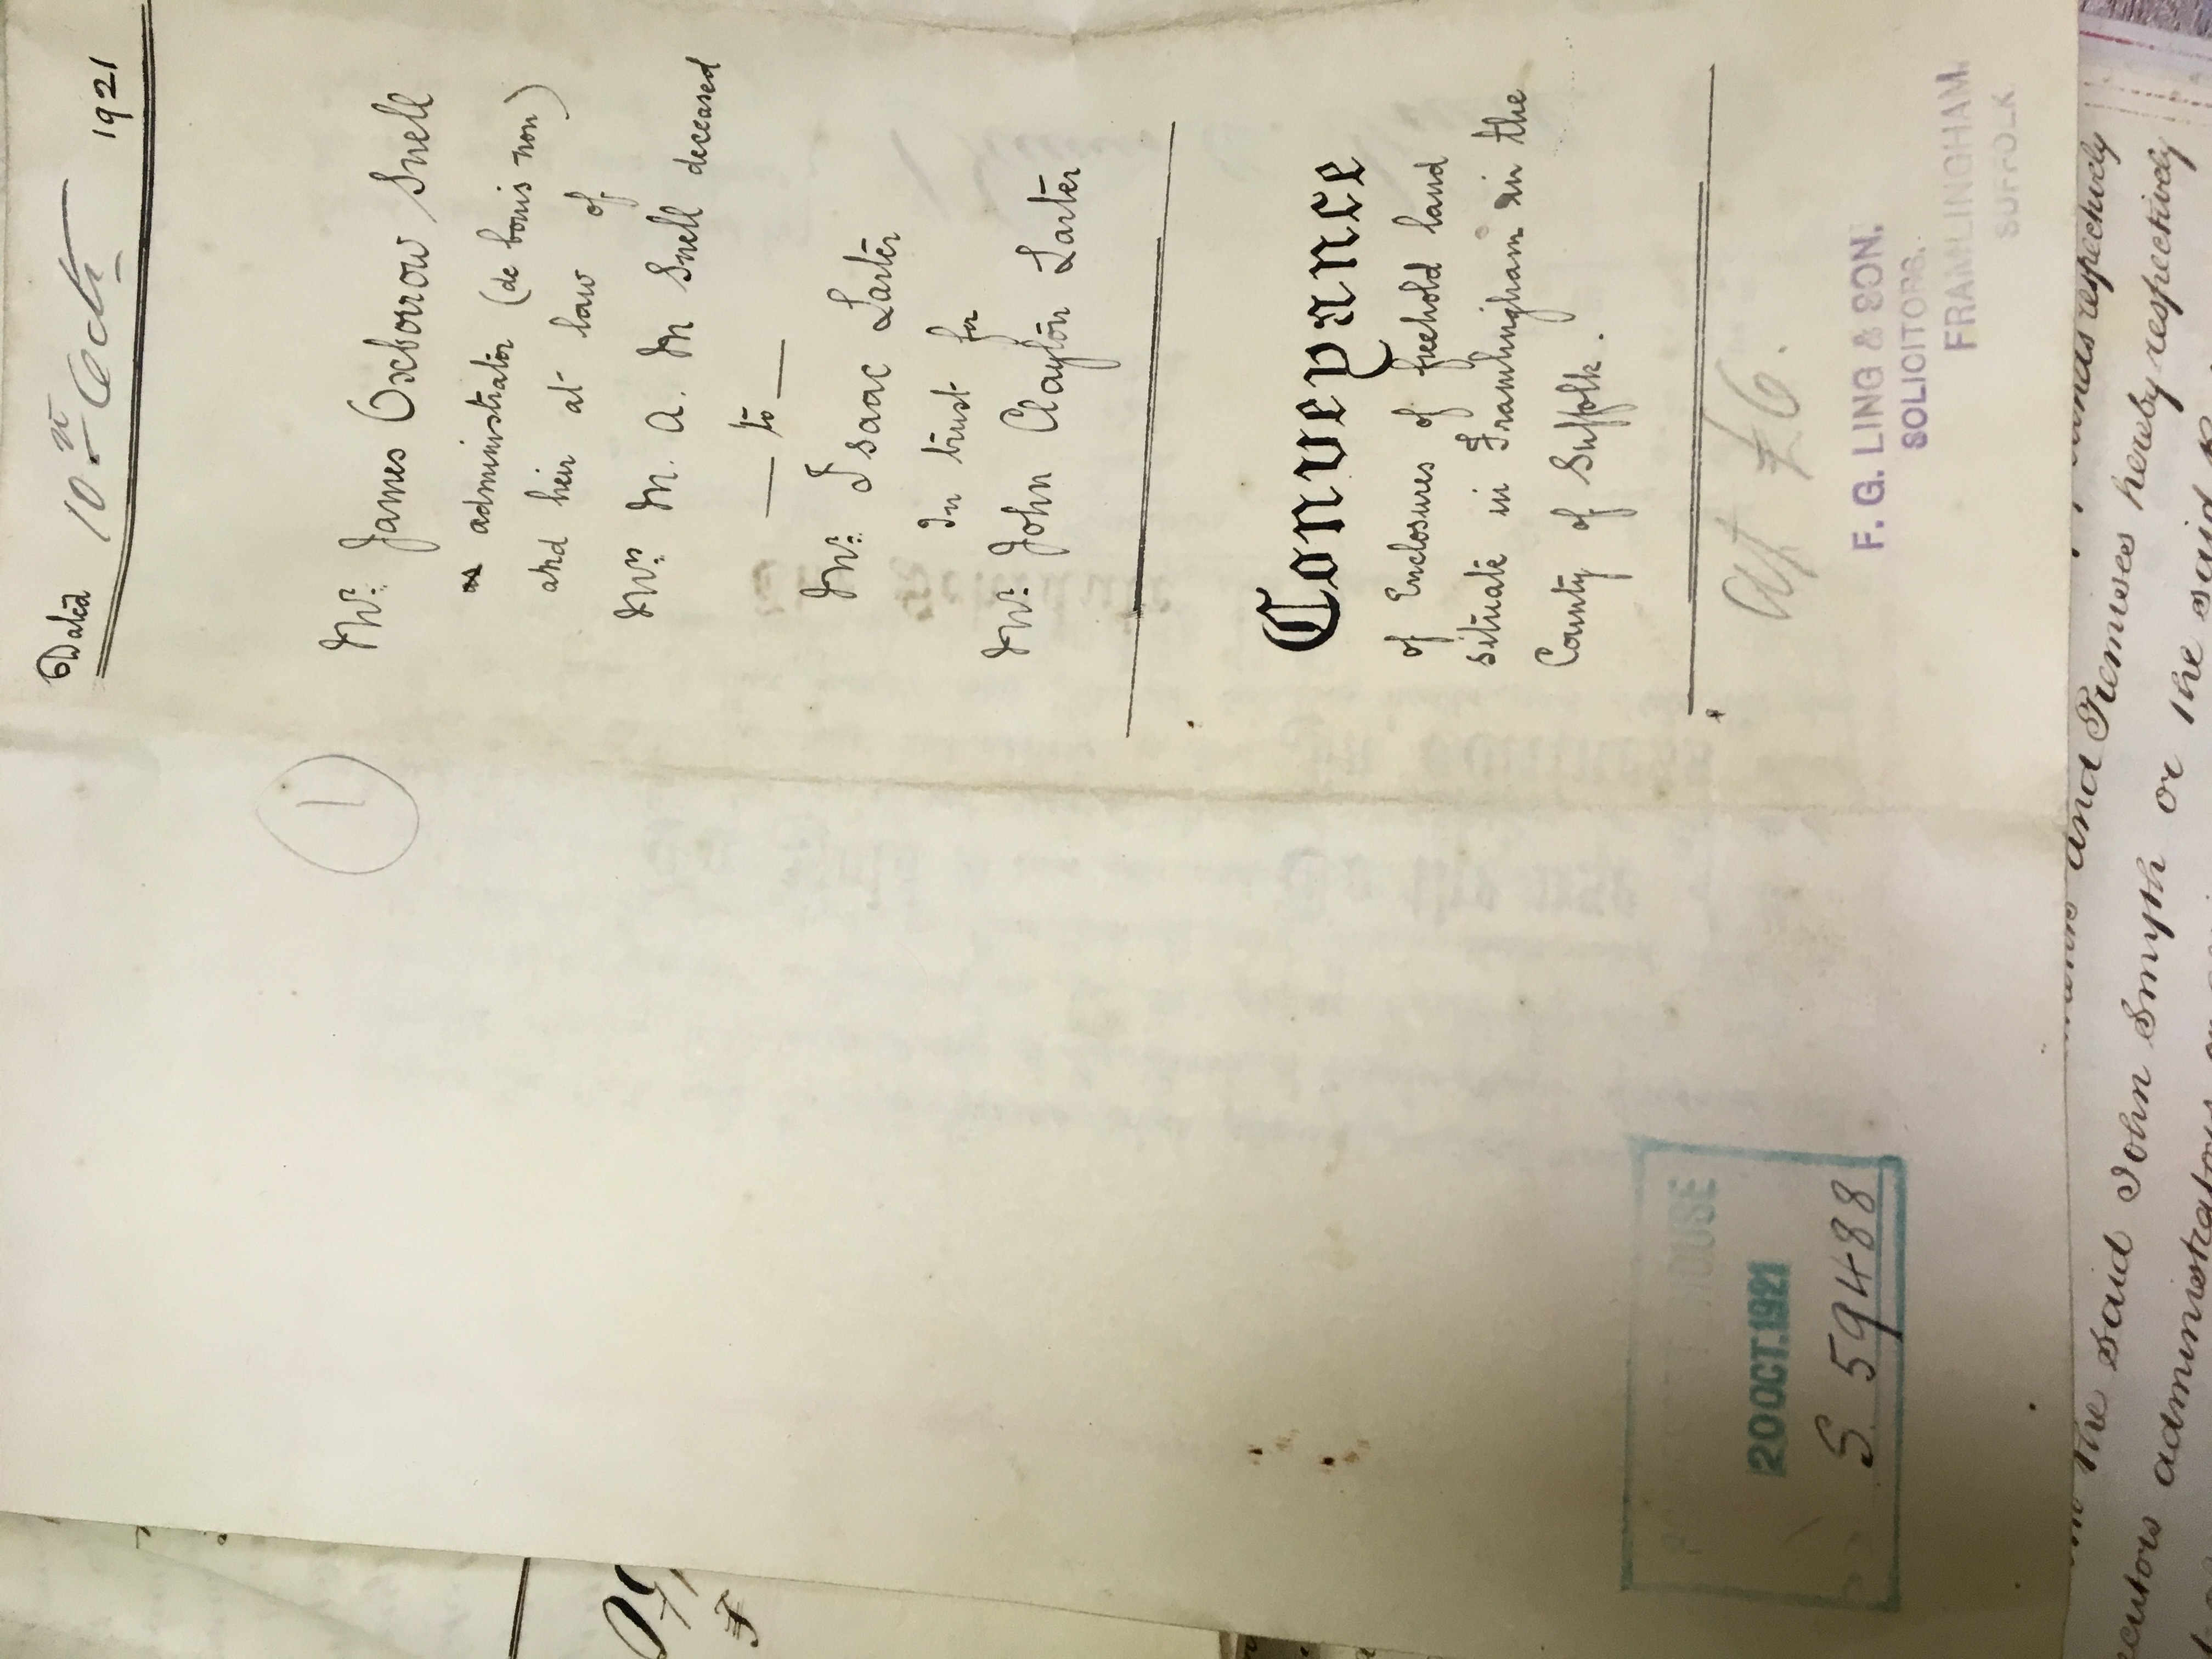 Dated 10th Oct. 1921
Mr. James Oxborrow Snell
as administrator (de bonis non)
and heir at law of
Mrs. M. A. M Snell deceased
— to —
Mr. Isaac Larter
In trust for
Mr. John Clayton Larter
Conveyance
of Enclosures of freehold land
situate in Framlingham in the
County of Suffolk.
£6.
F. G. LING & SON.
SOLICITORS.
FRAMLINGHAM.
SUFFOLK
1
HOUSE
20 OCT. 1921
S 59488
respectively
and Premises hereby respectively
the said John Smyth or the said
administrators